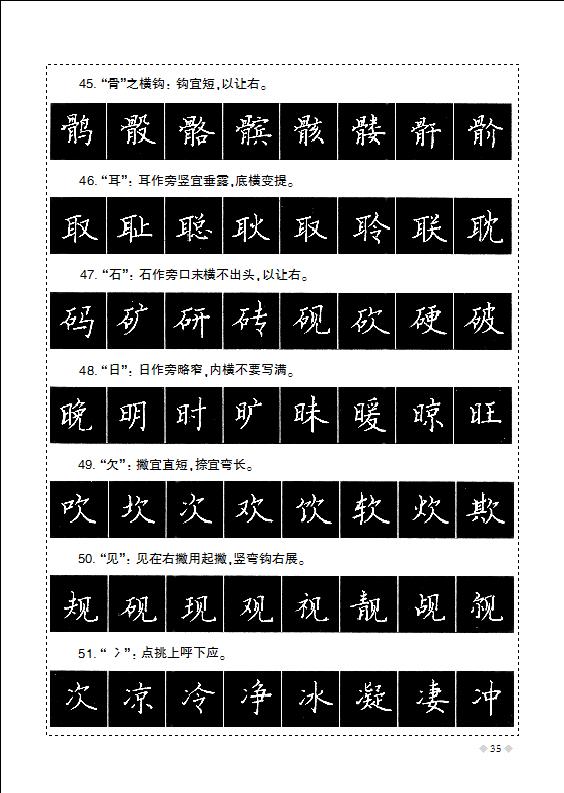 45. “骨”之横钩：钩宜短，以让右。
鹘 骰 骼 髌 骸 髅 骭 骱
46. “耳”：耳作旁竖宜垂露，底横变提。
取 耻 聪 耿 取 聆 联 耽
47. “石”：石作旁口末横不出头，以让右。
码 矿 研 砖 砚 砍 硬 破
48. “日”：日作旁略窄，内横不要写满。
晚 明 时 旷 昧 暖 晾 旺
49. “欠”：撇宜直短，捺宜弯长。
吹 坎 次 欢 饮 软 炊 欺
50. “见”：见在右撇用起撇，竖弯钩右展。
规 砚 现 观 视 靓 觇 觎
51. “冫”：点挑上呼下应。
次 凉 冷 净 冰 凝 凄 冲
35